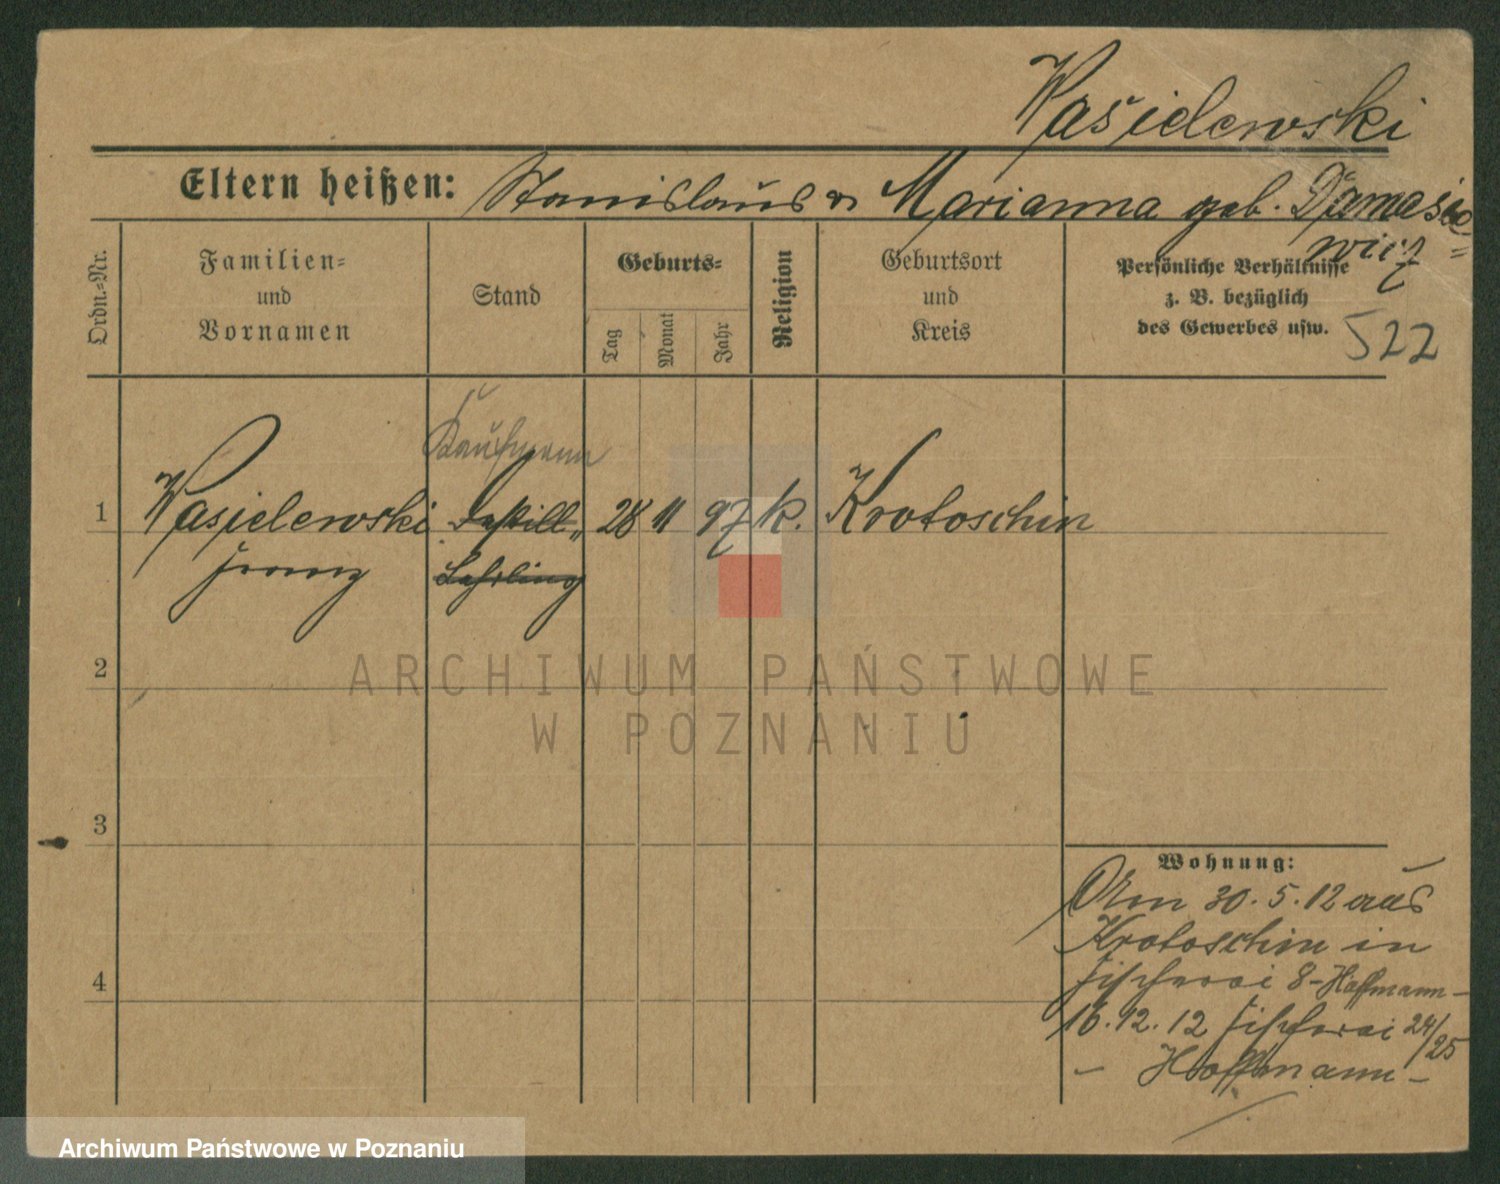 Wasielewski
Eltern heißen: Stanislaus u Marianna geb. Damasie=
wicz
Ordn.=Nr.
Familien=
und
Vornamen
Stand
Geburts=
Tag
Monat
Jahr
Religion
Geburtsort
und
Kreis
Persönliche Verhältnisse
z. B. bezüglich
des Gewerbes usw.
522
Kaufmann
1 Wasielewski Destill= 28 11 97 k. Krotoschin
Franz Lehrling
2
3
4
Wohnung:
30.5.12 aus
Krotoschin in
Fischerei 8 - Hoffmann -
16.12.12 Fischerei 24/25
- Hoffmann -
ARCHIWUM PAŃSTWOWE
W POZNANIU
Archiwum Państwowe w Poznaniu